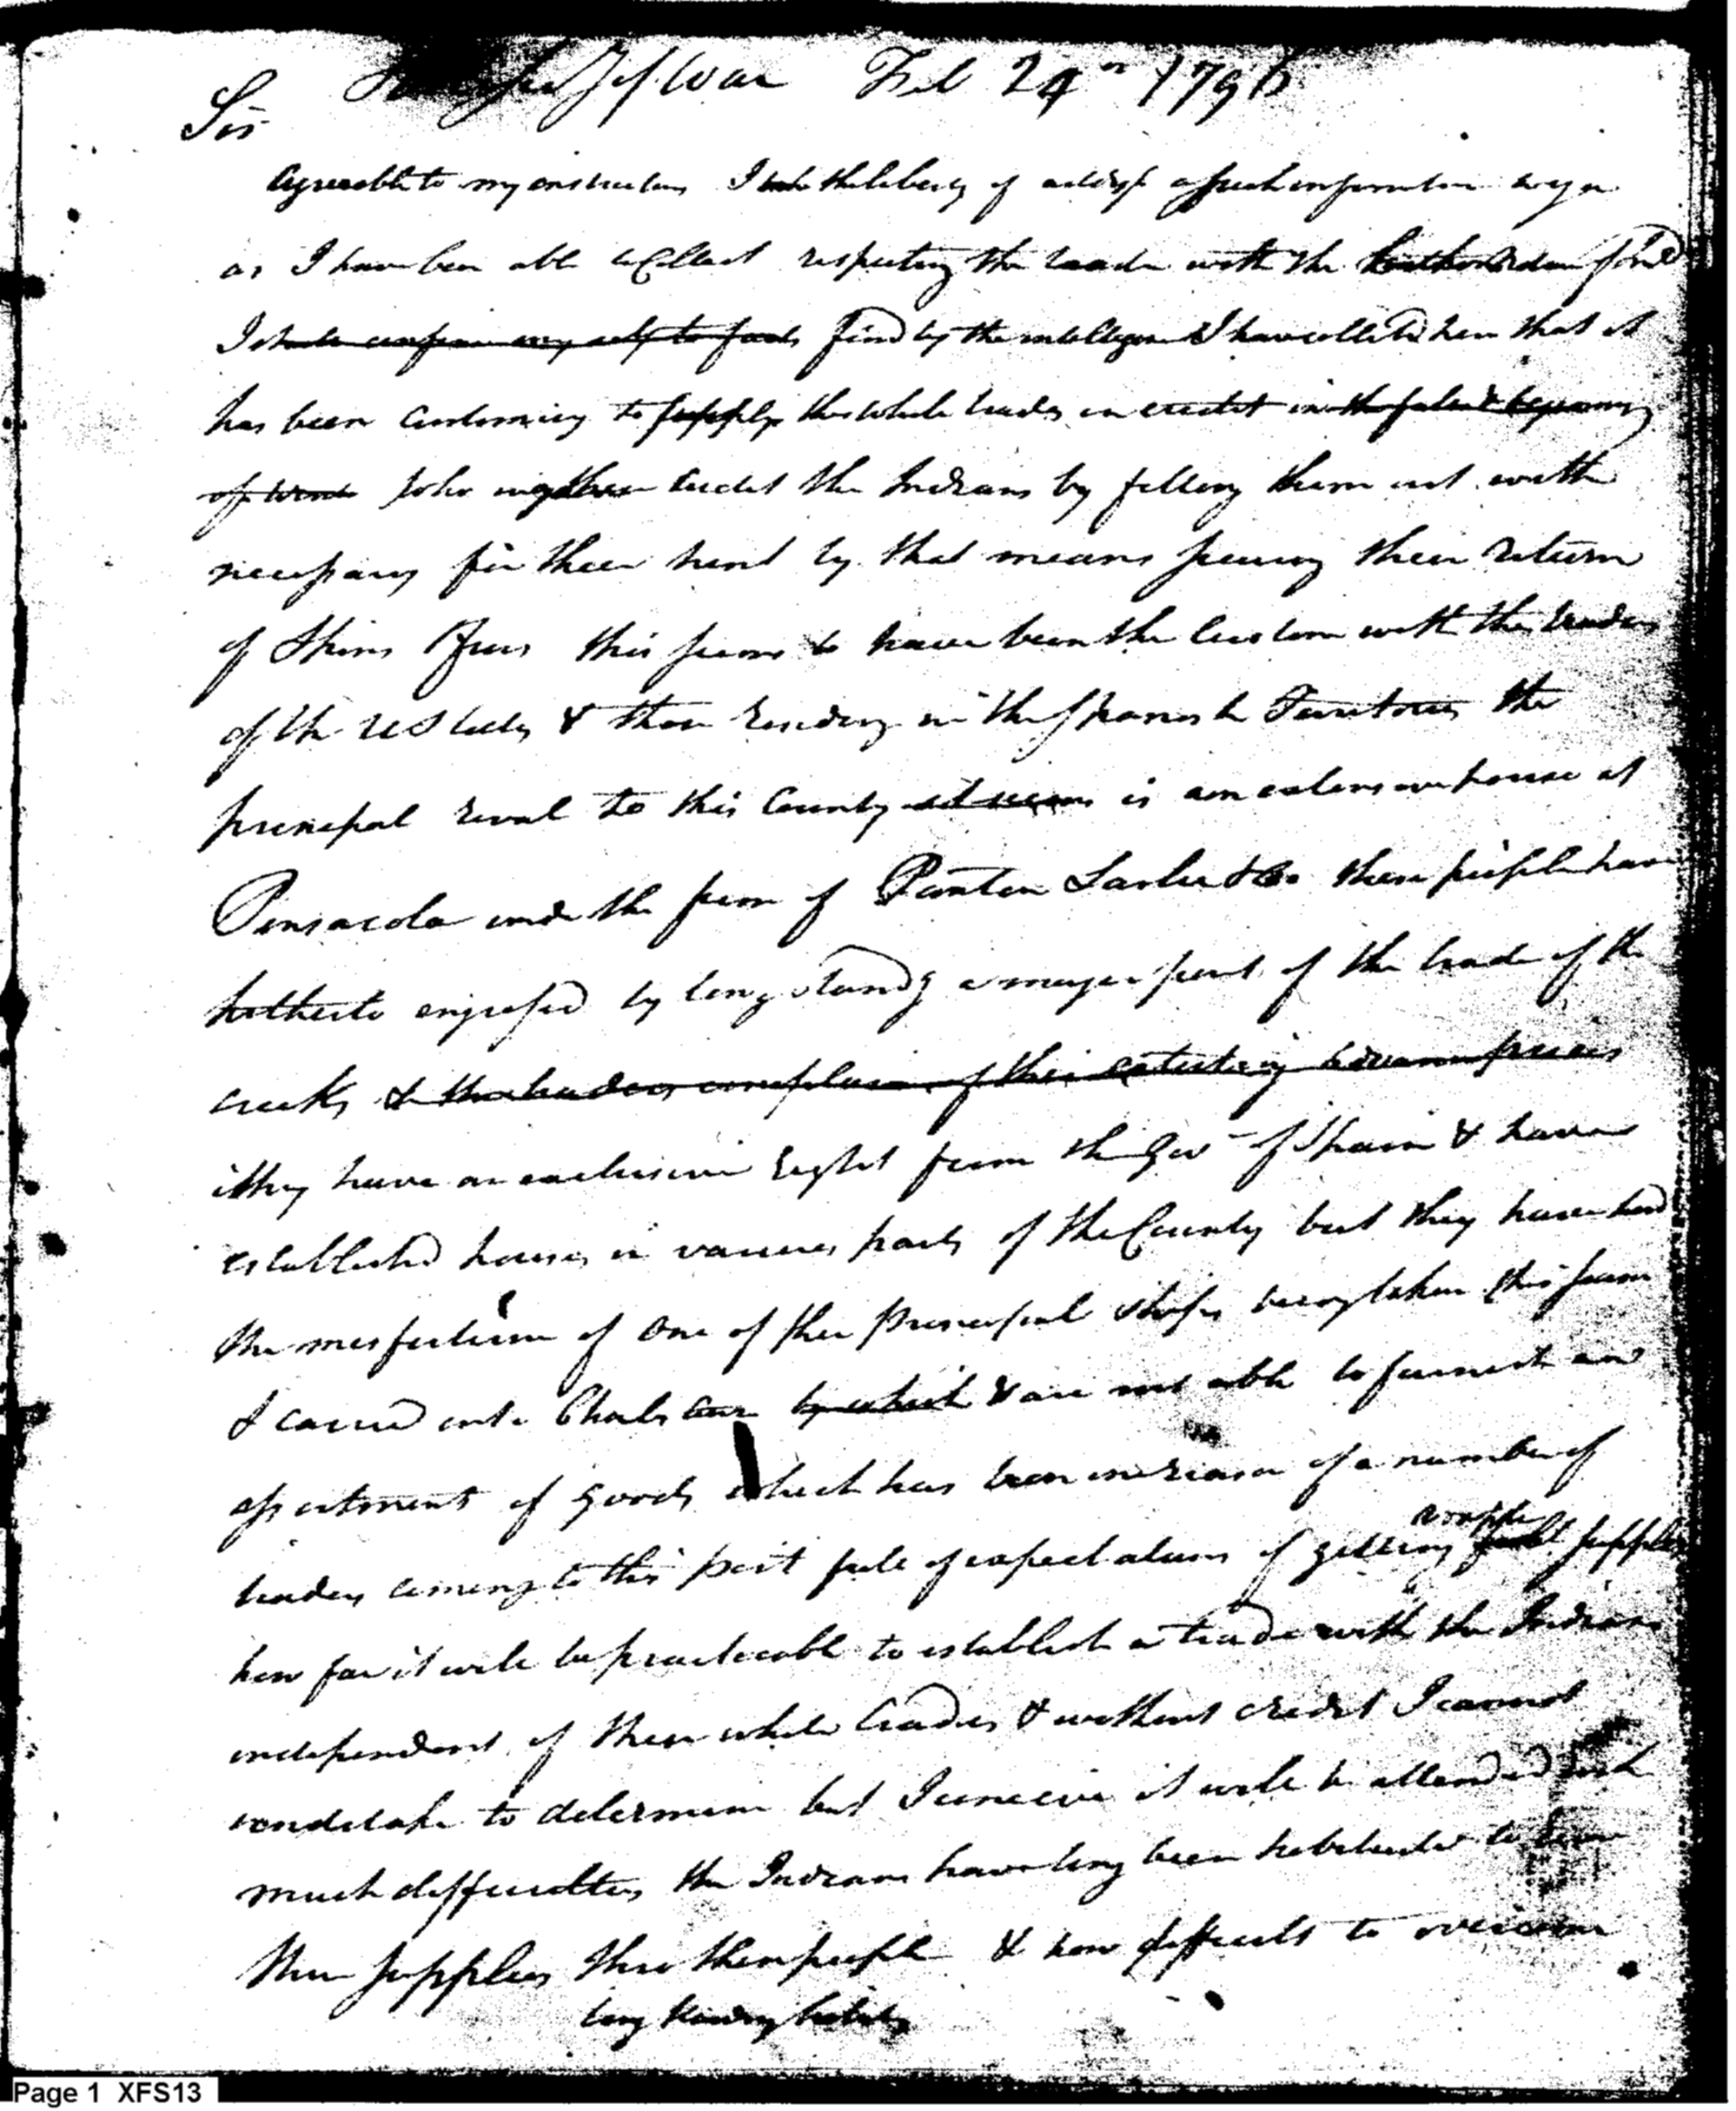 of War Feb 24th 1796
Sir
Agreeable to my instructions I take the liberty of such information
as I have been able to Collect respecting the trade with the
I shall confine my self to facts find by the intelligence I have collected here that it
has been customary to supply the white traders on credit in the
of who credit the Indians by fitting them out with
necessary for their hunt by that means securing their return
of Skins & Furs this seems to have been the Custom with the traders
of the U States & those residing in the Spanish Territories the
principal rival to this Country it seems is an extensive house at
Pensacola under the firm of Panton Leslie & Co these people have
hitherto engrossed by long standg a major part of the trade of the
creeks & the traders complain of their prices
they have an exclusive right from the Govt of Spain & have
established houses in various parts of the Country but they have had
the misfortune of one of their Principal ships being taken this
& carried into Charleston by which & are not able to furnish an
assortment of Goods which has been one reason of a number of
traders coming to this port full of expectations of getting supplies
how far it will be practicable to establish a trade with the Indians
independent of these white traders & without credit I cannot
undertake to determine but I conceive it will be attended with
much difficulties the Indians have long been habituated to
their supplies thro these people & how difficult to overcome
long standing habits
Page 1 XFS13